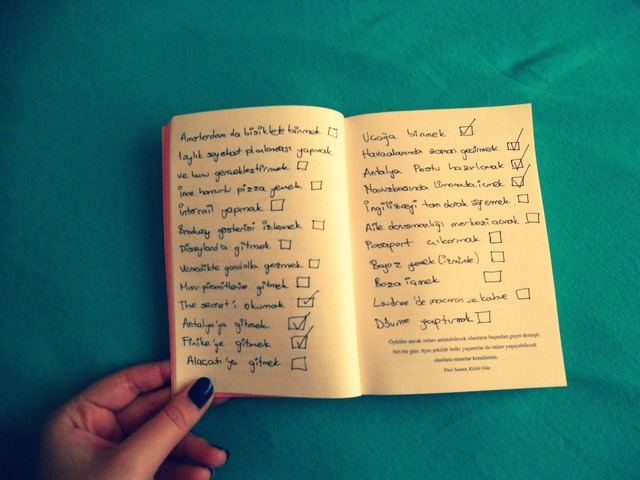 Amsterdam da bisiklete binmek
1 aylık seyahat planlaması yapmak
ve bunu gerçekleştirmek
İnce hamurlu pizza yemek
İnterrail yapmak
Broadway gösterisi izlemek
Disneyland'a gitmek
Venedikte gondolla gezmek
Mısır piramitlerine gitmek
The secret'ı okumak
Antalya'ya gitmek
Finike'ye gitmek
Alaçatı'ya gitmek
Uçağa binmek
Havaalanında zaman geçirmek
Antalya Postu hazırlamak
Havuzbaşında limonata içmek
İngilizceyi tam olarak öğrenmek
Aile danışmanlığı merkezi açmak
Pasaport çıkarmak
Boyoz yemek (izmirde)
Boza içmek
Londra'de macaron ve kahve
Dövme yaptırmak
Öyküler ancak onları anlatabilecek olanların başından geçer demişti
biri bir gün. Aynı şekilde belki yaşantılar da onları yaşayabilecek
olanlara sunarlar kendilerini.
Paul Auster, Kilitli Oda